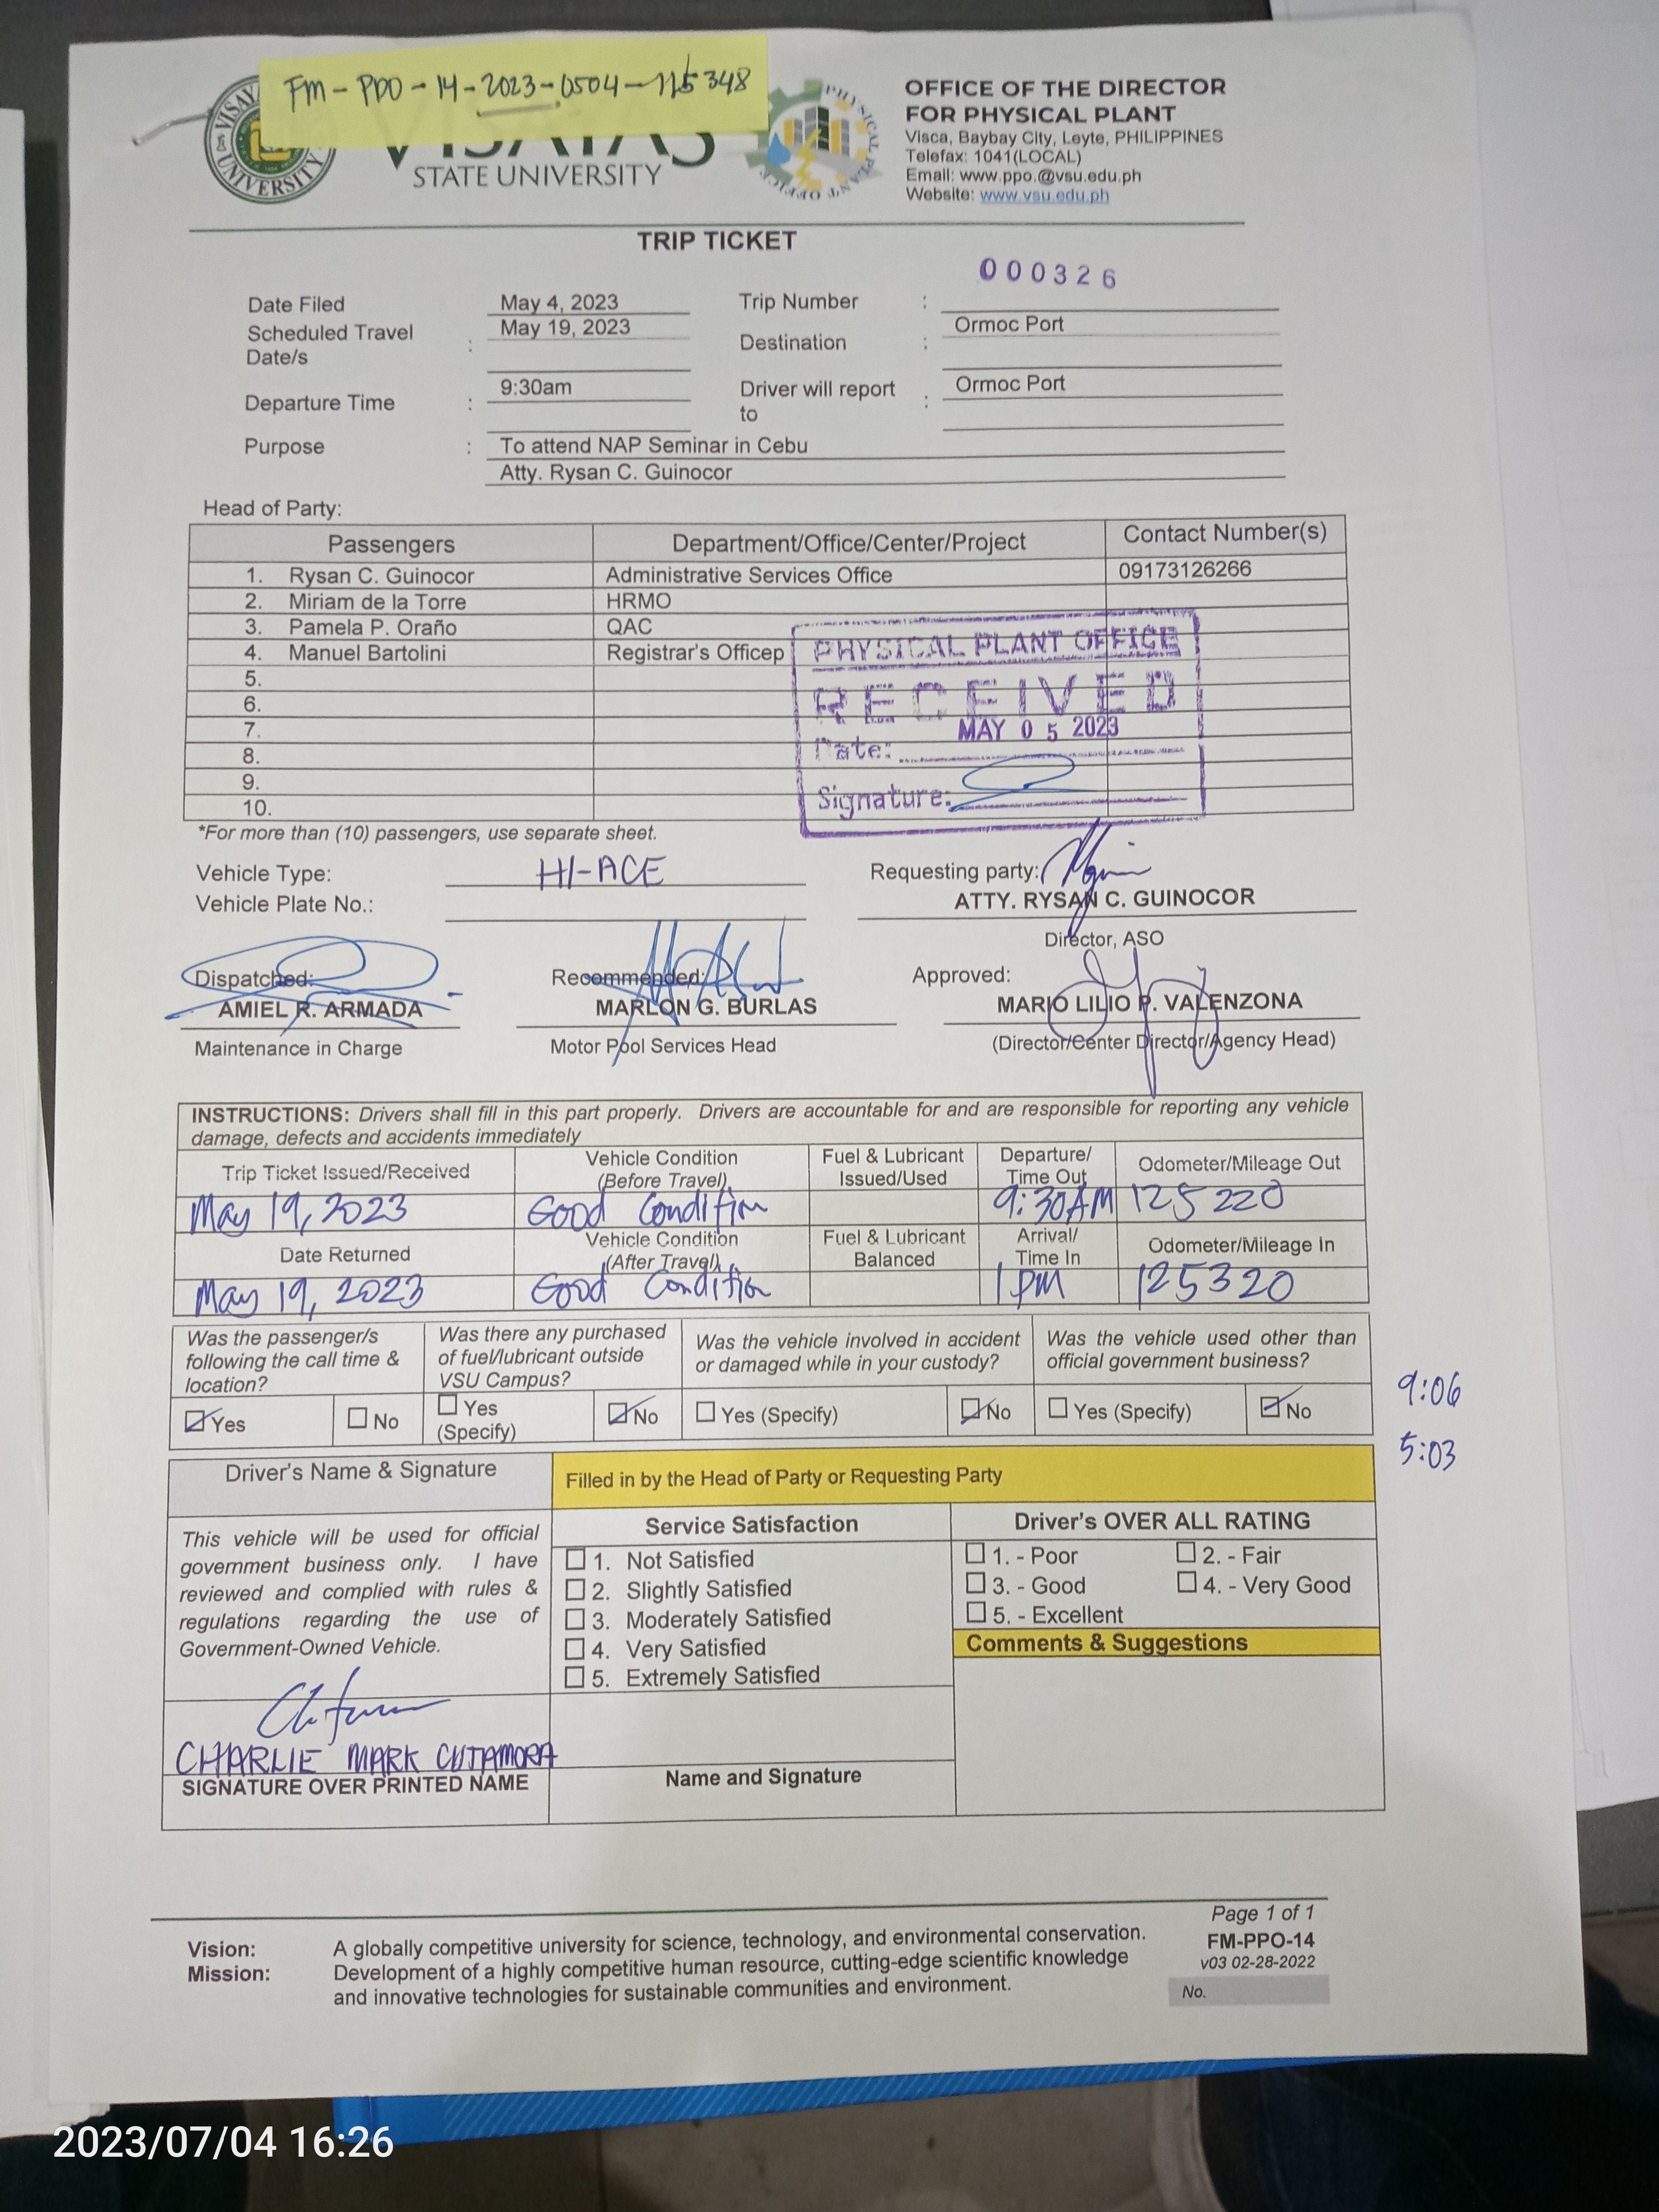 FM-PPO-14-2023-0504-115348
VISAYAS
STATE UNIVERSITY
OFFICE OF THE DIRECTOR
FOR PHYSICAL PLANT
Visca, Baybay City, Leyte, PHILIPPINES
Telefax: 1041(LOCAL)
Email: www.ppo.@vsu.edu.ph
Website: www.vsu.edu.ph
TRIP TICKET
000326
Date Filed May 4, 2023 Trip Number :
Scheduled Travel Date/s : May 19, 2023 Destination : Ormoc Port
Departure Time : 9:30am Driver will report to : Ormoc Port
Purpose : To attend NAP Seminar in Cebu
Atty. Rysan C. Guinocor
Head of Party:
Passengers Department/Office/Center/Project Contact Number(s)
1. Rysan C. Guinocor Administrative Services Office 09173126266
2. Miriam de la Torre HRMO
3. Pamela P. Oraño QAC
4. Manuel Bartolini Registrar's Officep
5.
6.
7.
8.
9.
10.
PHYSICAL PLANT OFFICE
RECEIVED
MAY 05 2023
Date:
Signature:
*For more than (10) passengers, use separate sheet.
Vehicle Type: HI-ACE Requesting party:
Vehicle Plate No.: ATTY. RYSAN C. GUINOCOR
Director, ASO
Dispatched: Recommended: Approved:
AMIEL R. ARMADA MARLON G. BURLAS MARIO LILIO P. VALENZONA
Maintenance in Charge Motor Pool Services Head (Director/Center Director/Agency Head)
INSTRUCTIONS: Drivers shall fill in this part properly. Drivers are accountable for and are responsible for reporting any vehicle
damage, defects and accidents immediately
Trip Ticket Issued/Received Vehicle Condition (Before Travel) Fuel & Lubricant Issued/Used Departure/ Time Out Odometer/Mileage Out
May 19, 2023 Good Condition 9:30AM 125220
Date Returned Vehicle Condition (After Travel) Fuel & Lubricant Balanced Arrival/ Time In Odometer/Mileage In
May 19, 2023 Good Condition 1PM 125320
Was the passenger/s following the call time & location? Was there any purchased of fuel/lubricant outside VSU Campus? Was the vehicle involved in accident or damaged while in your custody? Was the vehicle used other than official government business?
Yes No Yes (Specify) No Yes (Specify) No Yes (Specify) No
9:06
5:03
Driver's Name & Signature Filled in by the Head of Party or Requesting Party
This vehicle will be used for official
government business only. I have
reviewed and complied with rules &
regulations regarding the use of
Government-Owned Vehicle.
CHARLIE MARK CUTAMORA
SIGNATURE OVER PRINTED NAME
Service Satisfaction
1. Not Satisfied
2. Slightly Satisfied
3. Moderately Satisfied
4. Very Satisfied
5. Extremely Satisfied
Name and Signature
Driver's OVER ALL RATING
1. - Poor 2. - Fair
3. - Good 4. - Very Good
5. - Excellent
Comments & Suggestions
Vision: A globally competitive university for science, technology, and environmental conservation.
Mission: Development of a highly competitive human resource, cutting-edge scientific knowledge
and innovative technologies for sustainable communities and environment.
Page 1 of 1
FM-PPO-14
v03 02-28-2022
No.
2023/07/04 16:26